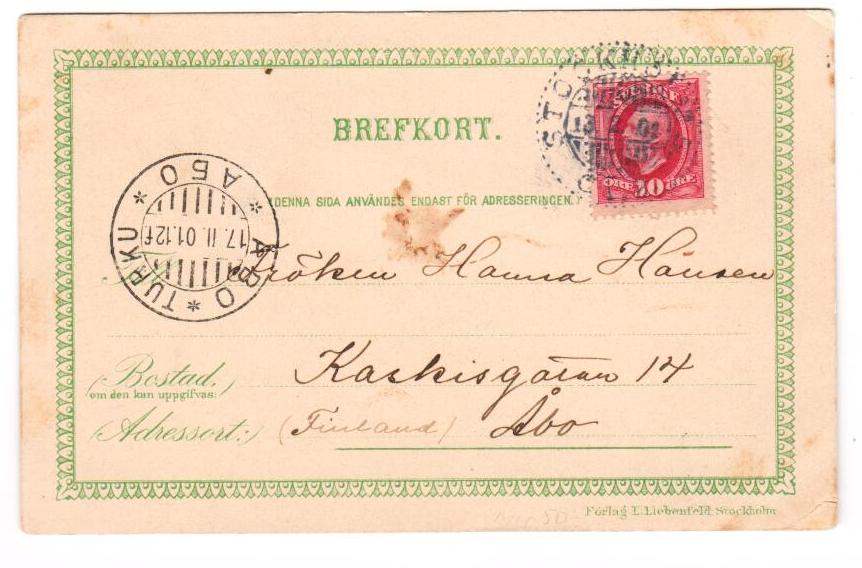 BREFKORT.
STOCKHOLM
13
SVERIGE
ÖRE 10 ÖRE
(DENNA SIDA ANVÄNDES ENDAST FÖR ADRESSERINGEN.)
АБО * ÅBO * TURKU *
17.II.01.12f
Fröken Hanna Hansen
(Bostad,) Kaskisgatan 14
om den kan uppgifvas:
(Adressort:) (Finland) Åbo
Förlag I. Liebenfeld, Stockholm